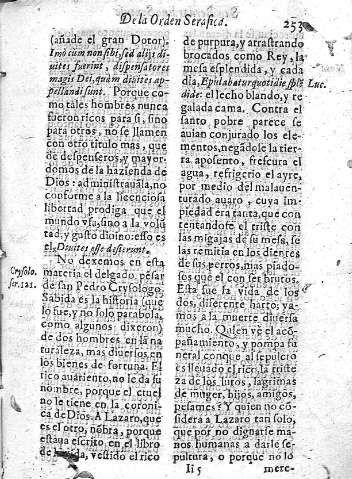 De la Orden Serafica.
253
(añade el gran Dotor).
Imò cum non sibi, sed alijs di
uites fuerint, dispensatores
magis Dei, quàm diuites ap-
pellandi sunt. Porque co-
mo tales hombres nunca
fueron ricos para si, sino
para otros, no se llamen
con otro titulo mas, que
de despenseros, y mayor-
domos de la hazienda de
Dios: administrauála, no
conforme a la licenciosa
libertad prodiga que el
mundo vsa, sino a la volũ
tad, y gusto diuino: esso es
el, Diuites esse desierunt.
No dexemos en esta
materia el delgado pesar
de san Pedro Crysologo.
Sabida es la historia (que
lo fue, y no solo parabola,
como algunos dixeron)
de dos hombres en la na
turaleza, mas diuersos en
los bienes de fortuna. El
rico auariento, no le da su
nombre, porque el cruel
no le tiene en la coroni-
ca de Dios. A Lazaro, que
es el otro, nõbra, porque
estaua escrito en el libro
de la vida, vestido el rico
Crysolo.
ser. 121.
de purpura, y arrastrando
brocados como Rey, la
mesa esplendida, y cada
dia, Epulabatur quotidie splẽ
dide: el lecho blando, y re
galada cama. Contra el
santo pobre parece se
auian conjurado los ele-
mentos, negãdole la tier-
ra aposento, frescura el
agua, refrigerio el ayre,
por medio del malauen-
turado auaro, cuya im-
piedad era tanta, que con
tentandose el triste con
las migajas de su mesa, se
las remitia en los dientes
de sus perros, mas piado-
sos que el con ser brutos.
Esta es la vida de los
dos, diferente harto; va-
mos a la muerte diuersa
mucho. Quien vè el acõ-
pañamiento, y pompa fu
neral conque al sepulcro
es lleuado el rico, la triste
za de los lutos, lagrimas
de muger, hijos, amigos,
pesames? Y quien no cõ
sidera a Lazaro tan solo,
que por no dignarse ma-
nos humanas a darle se-
pultura, o porque no lo
Luc.
Ii 5
mere-